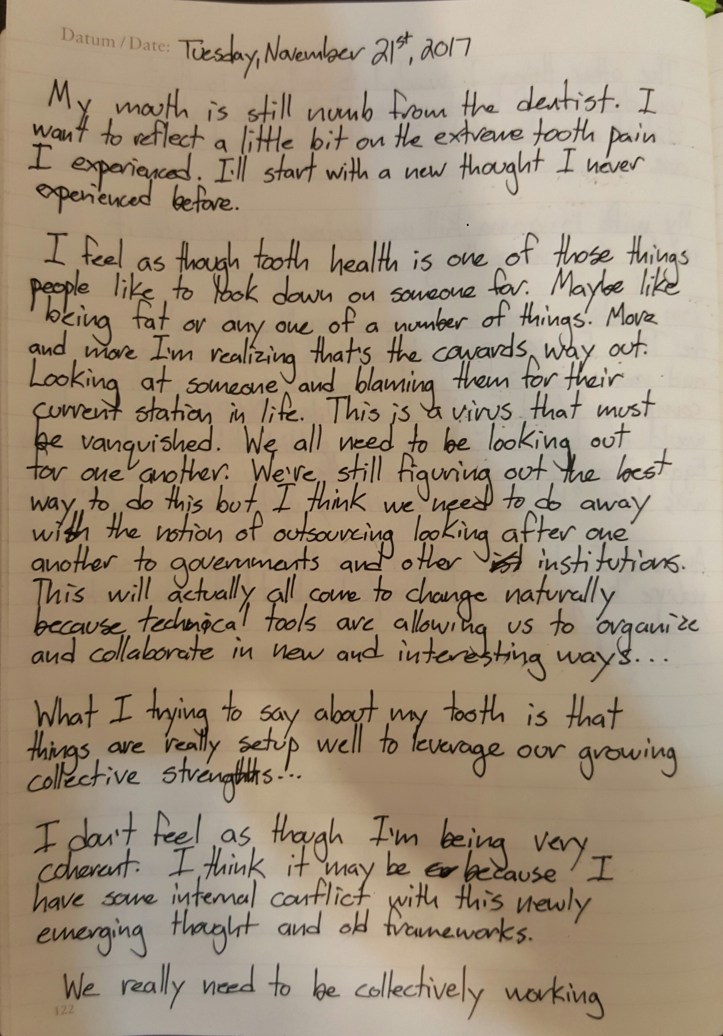 Datum / Date: Tuesday, November 21st, 2017
My mouth is still numb from the dentist. I
want to reflect a little bit on the extreme tooth pain
I experienced. I'll start with a new thought I never
experienced before.
I feel as though tooth health is one of those things
people like to look down on someone for. Maybe like
being fat or any one of a number of things. More
and more I'm realizing that's the cowards way out.
Looking at someone and blaming them for their
current station in life. This is a virus that must
be vanquished. We all need to be looking out
for one another. We're still figuring out the best
way to do this but I think we need to do away
with the notion of outsourcing looking after one
another to governments and other ist institutions.
This will actually all come to change naturally
because technical tools are allowing us to organize
and collaborate in new and interesting ways...
What I trying to say about my tooth is that
things are really setup well to leverage our growing
collective strengths!..
I don't feel as though I'm being very
coherent. I think it may be because I
have some internal conflict with this newly
emerging thought and old frameworks.
We really need to be collectively working
122